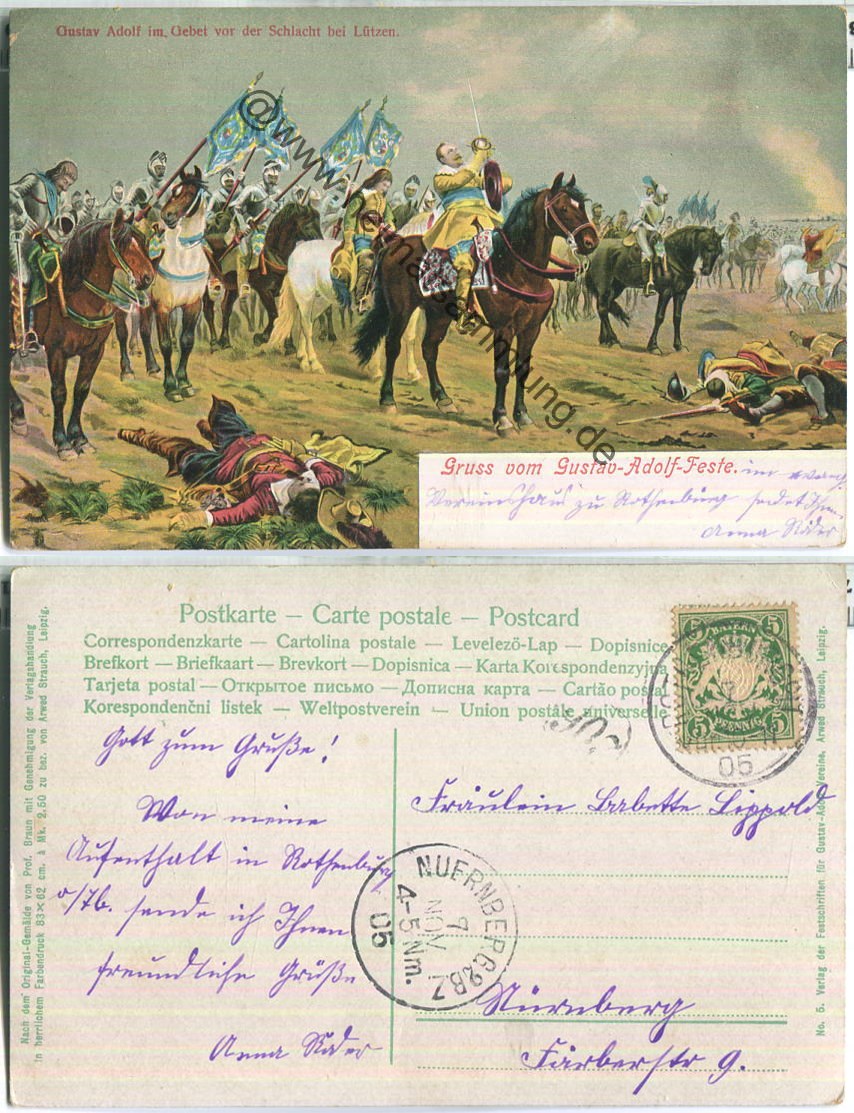 Gustav Adolf im Gebet vor der Schlacht bei Lützen.
@www.ansammlung.de
Gruss vom Gustav-Adolf-Feste. im evang
Vereinshaus zu Rothenburg sendet Ihnen
Anna Räder
Postkarte – Carte postale – Postcard
Correspondenzkarte – Cartolina postale – Levelezö-Lap – Dopisnice
Brefkort – Briefkaart – Brevkort – Dopisnica – Karta Korespondenzyjna
Tarjeta postal – Открытое письмо – Дописна карта – Cartão postal
Korespondenčni listek – Weltpostverein – Union postale universelle
BAYERN
5 5
5 PFENNIG 5
05
Gott zum Gruße!
Von meine
Aufenthalt in Rothenburg
o/Tb. sende ich Ihnen
freundliche Grüße
Anna Räder
Fräulein Babette Lippold
Nürnberg
Färberstr 9.
NUERNBERG 2 BZ
7
NOV
4-5 Nm.
05
Nach dem Original-Gemälde von Prof. Braun mit Genehmigung der Verlagshandlung
in herrlichem Farbendruck 83×62 cm. à Mk. 2.50 zu bez. von Arwed Strauch, Leipzig.
No. 5. Verlag der Festschriften für Gustav-Adolf-Vereine, Arwed Strauch, Leipzig.